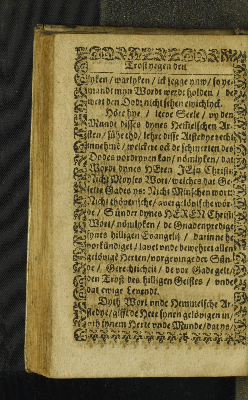 Trost yegen den
lyken / warlyken / ick segge yuw / so ye-
mandt myn Wordt werdt holden / de
wert den Dodt nicht sehen ewichlyck.
Höre hye / leeve Seele / uth den
Munde disses dynes Hemelschen Ar-
sten / söhestu / lehre disse Arstedye recht
annehmen / welckere ock de schmerten des
Dodes vordryven kan / nömlyken / dat
Wordt dynes HEren JEsu Christi:
Nicht Moyses Wort / welches dat Ge-
sette Gades ys: Nicht Minschen wort:
Nicht thövensche / averglövische wör-
de / Sünder dynes HEREN Christi
Wort / nömlyken / de Gnadenpredige
synes hilligen Evangelij / darinne he
vorkündiget / lavet unde bewehret allen
gelövigē Herten / vorgevinge der Sün-
de / Gerechticheit / de vor Gade geldt /
den Trost des hilligen Geistes / unde
dat ewige Levendt.
Dyth Wort unde Hemmelsche Ar-
stedye / gifft de Here synen gelövigen in
nich synem Herte unde Munde / dat ys /